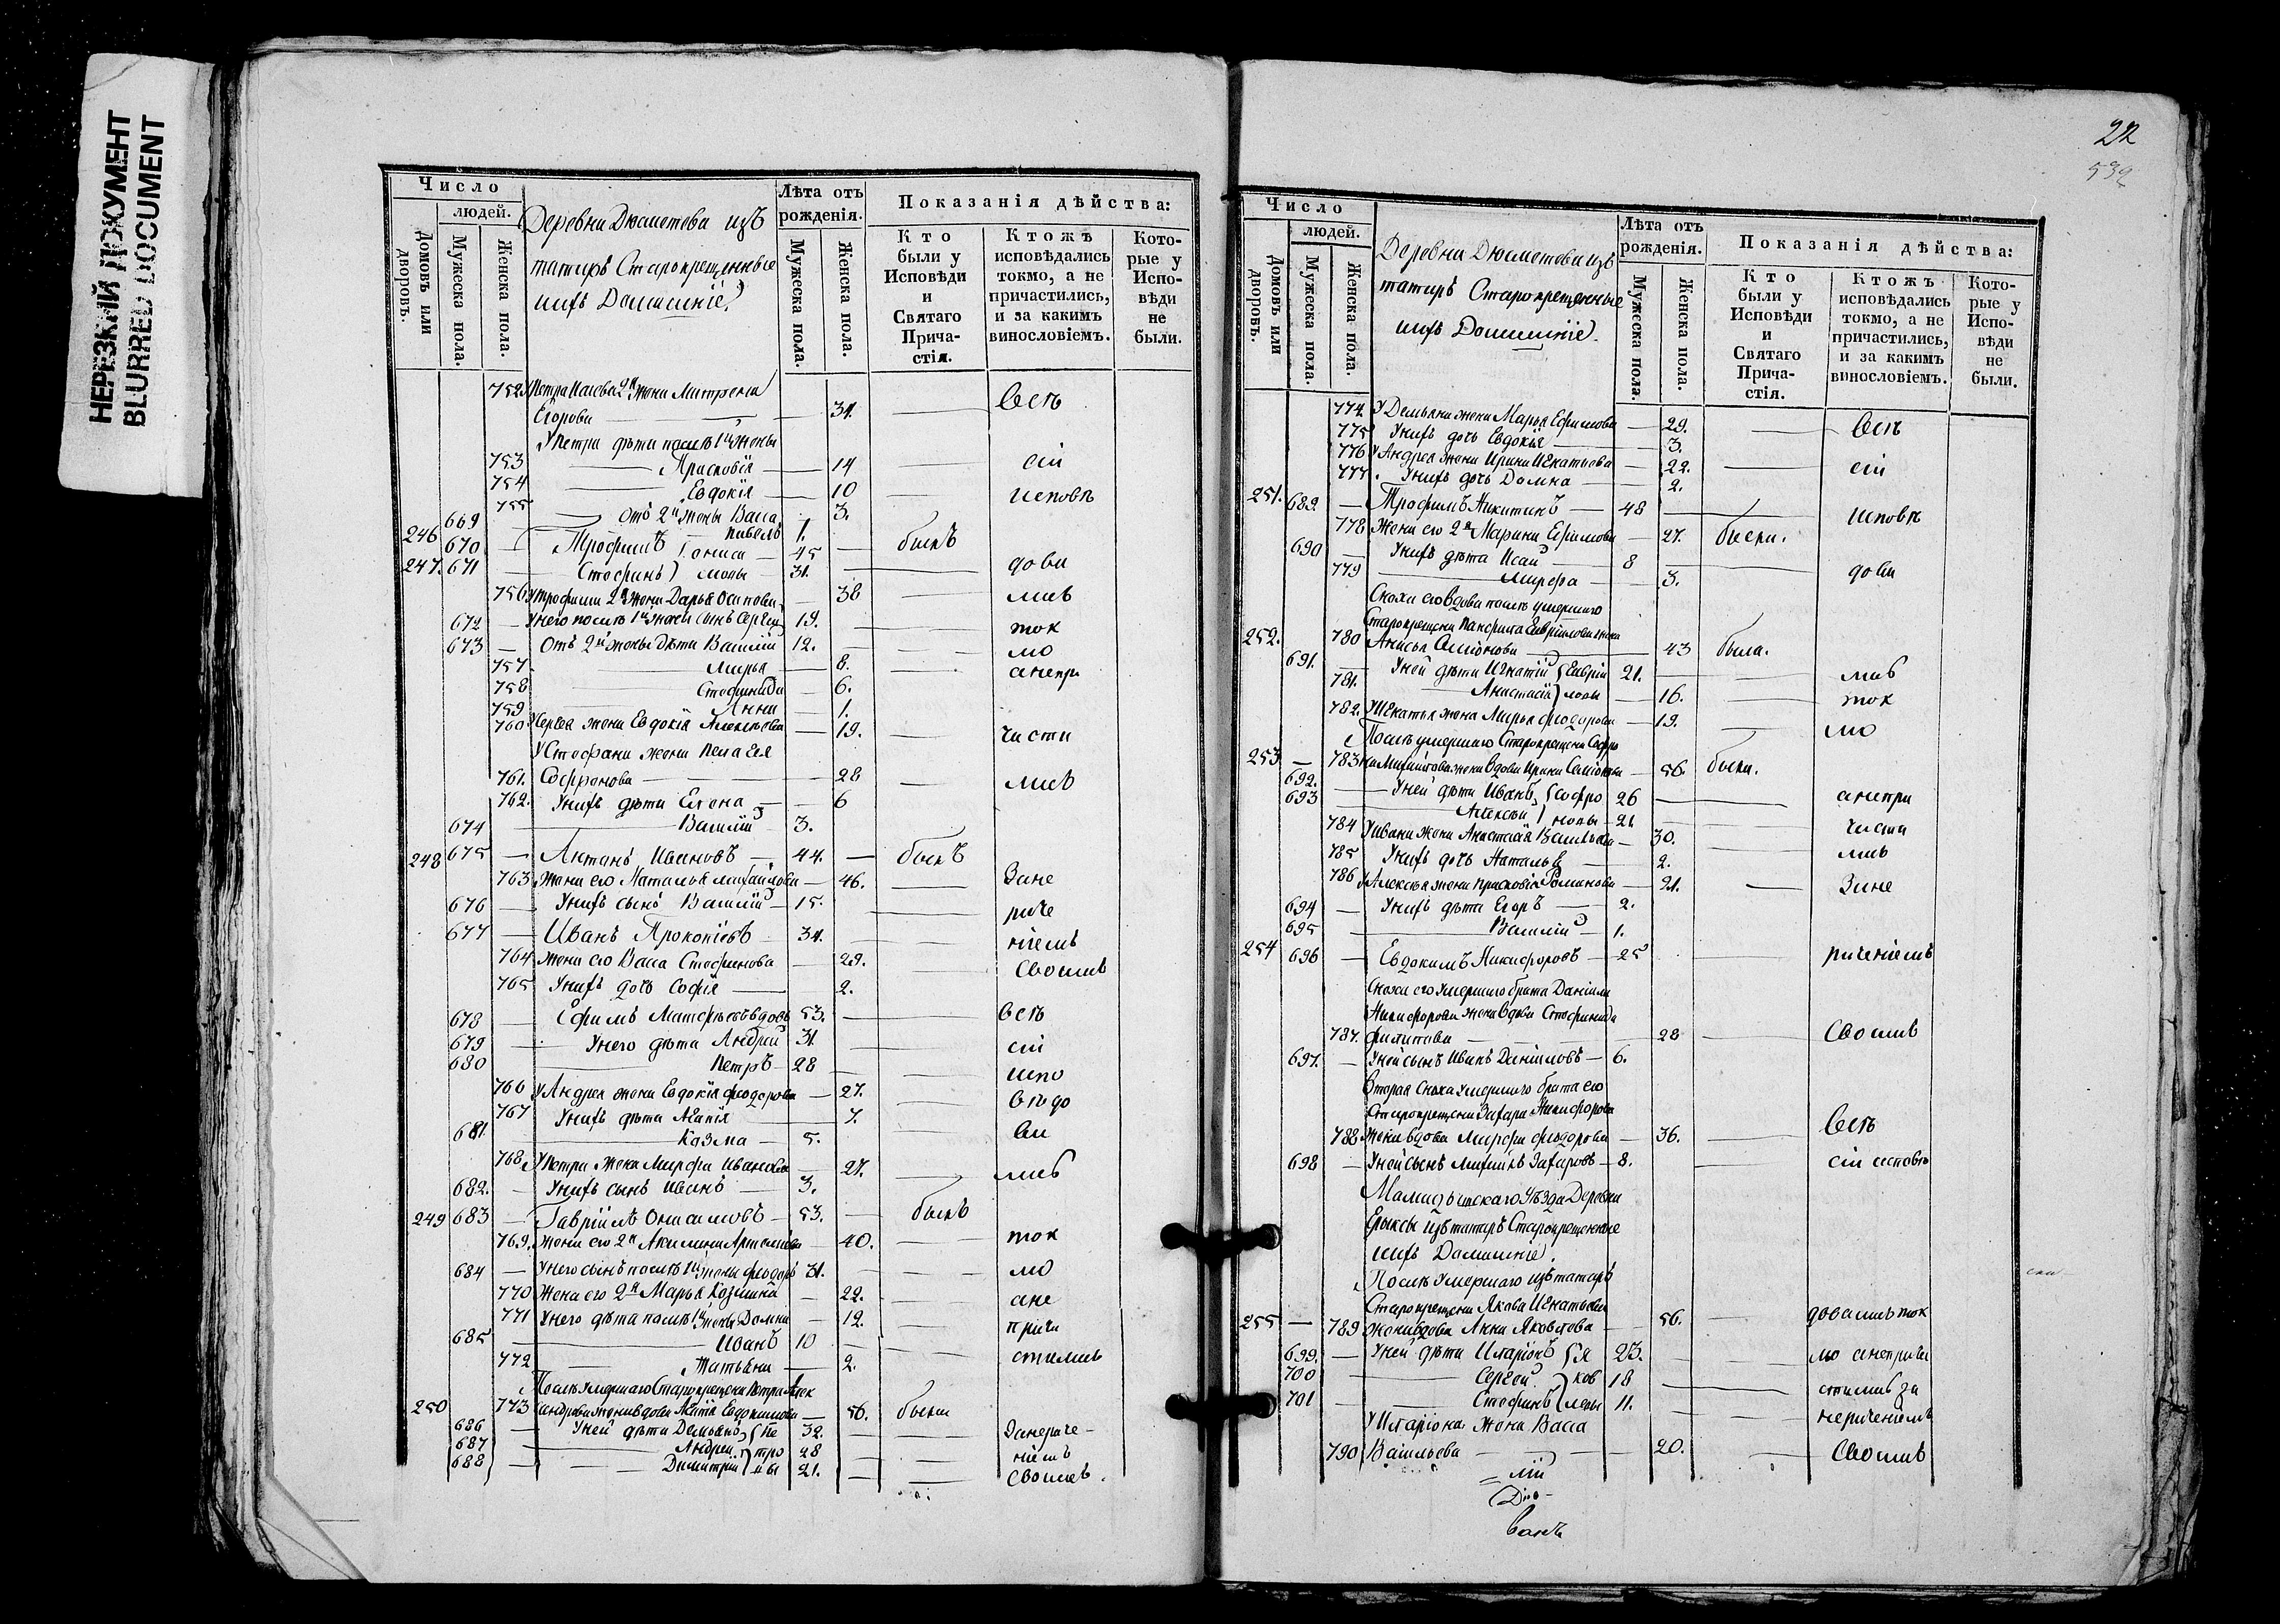 НЕРЕЗКИЙ ДОКУМЕНТ
BLURRED DOCUMENT
Число
людей.
Домовъ или дворовъ.
Мужеска пола.
Женска пола.
Деревни Дюсметева изъ
татаръ Старокрещенные
ихъ Домашніе
Лѣта отъ
рожденія.
Мужеска пола.
Женска пола.
Показанія дѣйства:
Кто
были у
Исповѣди
и
Святаго
Прича-
стія.
Ктожъ
исповѣдались
токмо, а не
причастились,
и за какимъ
винословіемъ.
Кото-
рые у
Испо-
вѣди
не
были.
752 Петра 2й жена Матрена
Егорова — 31. — всѣ
У Петра дѣти послѣ 1й жены
753 — Прасковія — 14 — сіи
754 — Евдокія — 10 — исповѣ
755 — отъ 2й жены Васса 3.
669 — Павелъ 1.
246 670 — Трофимъ — 45 — былъ
247. 671 — Стефанъ — 31. — дова
756 Трофима 2я жена Дарья Осипова — 38 — лис
672 — У него послѣ 1й жены сынъ Сергей 19. — ток
673 — Отъ 2й жены дѣти Василій 12. — мо
757 — Марья — 8. — анепри
758 — Стефанида — 6.
759 — Анна — 1.
760 Сергея жена Евдокія — 19. — части
У Стефана жена Пелагея
761. Софронова — 28 — лис
762. У нихъ дѣти Елена — 6
674 — Василій — 3.
248 675 — Антанъ Ивановъ — 44. — былъ
763. Жена его Наталья Михайлова — 46. — Зане
676 — У нихъ сынъ Василій — 15. — раче
677 — Иванъ Прокопіевъ — 31. — ніемъ
764 Жена его Васса Стефанова — 29. — своимъ
765 У нихъ дочь Софія — 2.
678 — Ефимъ вдовъ 53. — всѣ
679 — У него дѣти Андрей 31 — сіи
680 — Петръ — 28 — испо
766 У Андрея жена Евдокія Феодорова — 27. — вѣдо
767 У нихъ дѣти Агапія — 7. — ва
681. — Козма — 5.
768 У Петра жена Марфа Иванова — 27. — лис
682. — У нихъ сынъ Иванъ — 3.
249 683 — Гавріилъ — 53. — былъ
769. Жена его 2я Акилина — 40. — ток
684 — У него сынъ послѣ 1й жены Феодоръ 31. — мо
770 Жена его 2я Марья Козмина — 22. — ане
771 У него дѣти послѣ 1й жены Домна — 12. — прича
685 — Иванъ 10
772 — Татьяна — 2. — стились
Послѣ умершаго Старокрещена Петра Алек
250 773 сандрова жена вдова Агапія Евдокимова — 56. была
686 — У ней дѣти Демьянъ Пе 32. — Занераче-
687 — Андрей тро 28 — ніемъ
688 — Димитрій вы 21. — своимъ.
22
Число
людей.
Домовъ или дворовъ.
Мужеска пола.
Женска пола.
Деревни Дюсметева изъ
татаръ Старокрещенные
ихъ Домашніе.
Лѣта отъ
рожденія.
Мужеска пола.
Женска пола.
Показанія дѣйства:
Кто
были у
Исповѣди
и
Святаго
Прича-
стія.
Ктожъ
исповѣдались
токмо, а не
причастились,
и за какимъ
винословіемъ.
Кото-
рые у
Испо-
вѣди
не
были.
774. У Демьяна жена Марья Ефимова — 29. — всѣ
775 У нихъ дочь Евдокія — 3.
776 У Андрея жена Ирина Игнатиева — 22. — сіи
777. У нихъ дочь Домна — 2.
251. 689. — Трофимъ Никитинъ — 48 — исповѣ
778 Жена его 2я Марина Ефимова — 27. были.
690 — У нихъ дѣти Исай 8
779 — Марфа — 3. — дова
Сноха его вдова послѣ умершаго
Старокрещена Панфила Гавріилова жена
252. 780 Анисья Семіонова — 43 была.
691. — У ней дѣти Игнатій Гаврі 21. — лис
781. — Анастасія ловы — 16. — ток
782. У Игнатья жена Марья Феодорова — 19. — мо
Послѣ умершаго Старокрещена Софро
253 — 783 на жена вдова Ирина Семіонова — 56. была.
692. — У ней дѣти Иванъ Софро 26 — анепри
693 — Алексѣй новы — 21 — части
784 У Ивана жена Анастасія Васильева — 30. — лис
785 У нихъ дочь Наталья — 2.
786 У Алексѣя жена Прасковія Романова — 21. — Зане
694 — У нихъ дѣти Егоръ — 2.
695 — Василій — 1.
254 696 — Евдокимъ Никифоровъ — 25 — раченіемъ
Сноха его умершаго брата Даніила
Никифорова жена вдова Стефанида
787. Филипова — 28 — своимъ
697. — У ней сынъ Иванъ Даніиловъ — 6.
Вторая сноха умершаго брата его
Старокрещена Захара Никифорова
788 жена вдова Марфа Феодорова — 36. — всѣ
698 — У ней сынъ Михаилъ Захаровъ — 8. — сіи исповѣ
Мамадышскаго уѣзда Деревни
Ерыксы изъ татаръ Старокрещенные
ихъ Домашніе.
Послѣ умершаго изъ татаръ
Старокрещена Якова Игнатьева
255 — 789 жена вдова Анна Яковлева — 56. — довалисьток
699. — У ней дѣти Иларіонъ Я 23. — мо анеприча
700 — Сергей ков 18 — стились за
701 — Стефанъ левы 11. — нераченіемъ
У Иларіона жена Васса
790 Васильева — 20. — своимъ